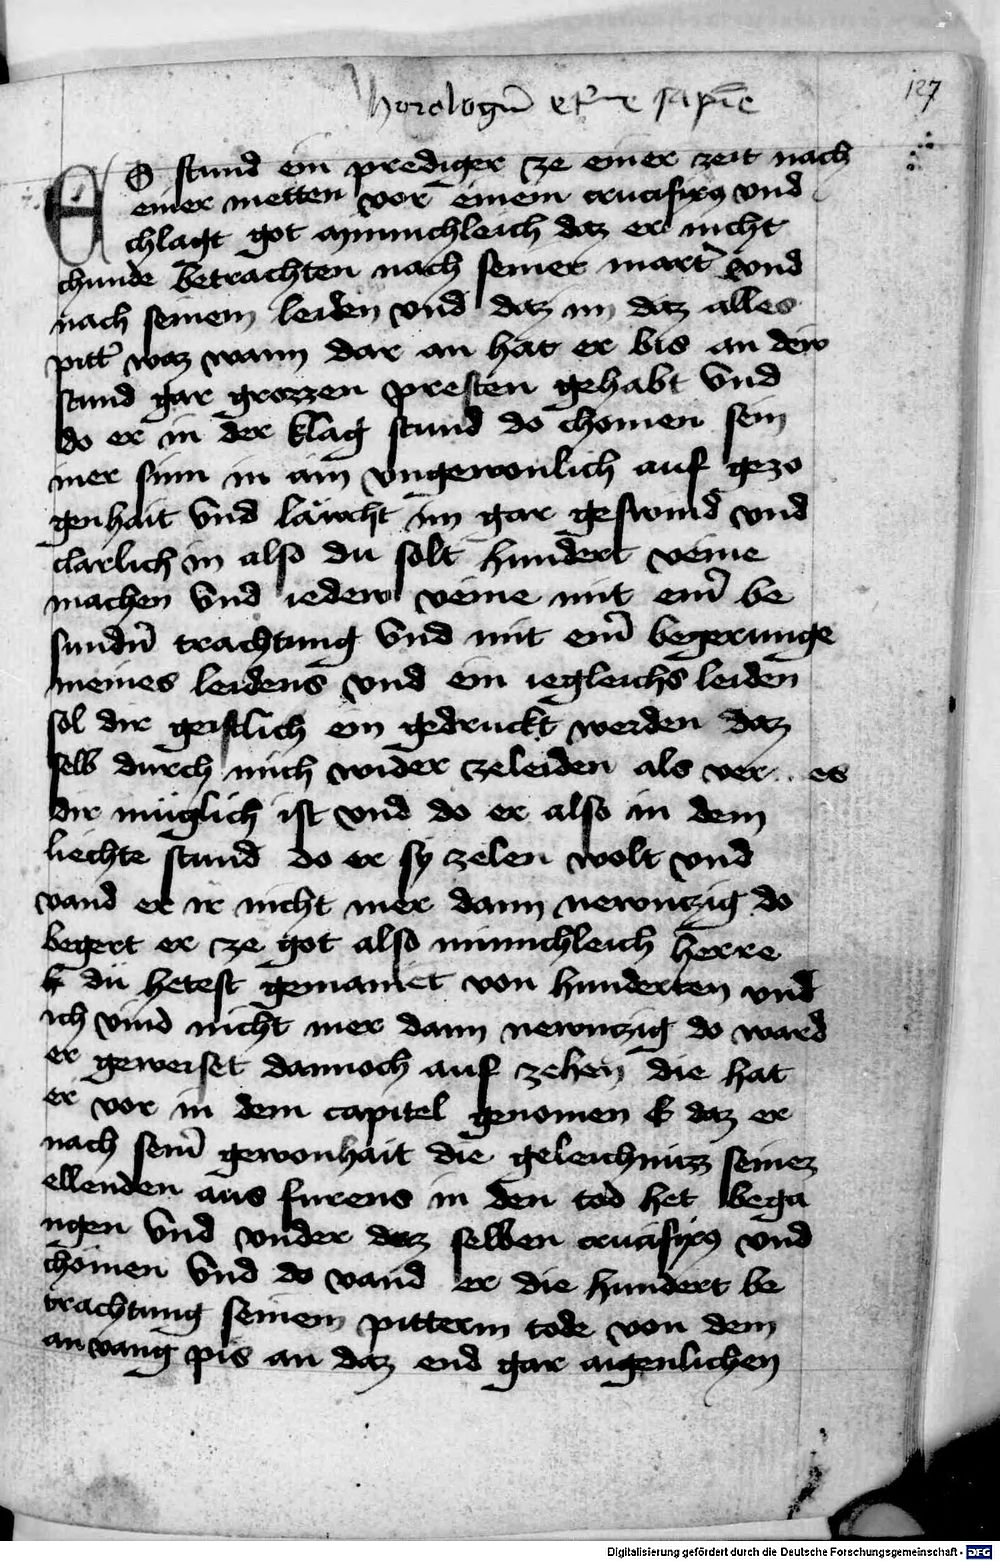 horologiu et'ne sapie
127
ES stund ein prediger ze einer zeit nach
einer metten vor einem crucifixus vnd
chlagt got mynnichleich daz er nicht
chunde betrachten nach seiner martr vnd
nach seinem leiden vnd daz im daz alles
pittr waz wann dar an hat er bis an dew
stund gar grozzen presten gehabt vnd
do er in der klag stund do chomen sein
iner sinn in ain vngewonlich auf gezo
genhait vnd läucht im gar geswind vnd
clarlich in also du solt hundert venie
machen vnd iedew venie mit einr be
sundn trachtung vnd mit einr begerunge
meines leidens vnd ein iegleichs leiden
sol dir geistlich ein gedruckt werden daz
selb durch mich wider zeleiden als ver es
dir müglich ist vnd do er also in dem
liechte stund do er sy zelen wolt vnd
vand er ir nicht mer dann newnczig do
begert er ze got also minnichleich herre
du hetest gemaniet von hunderten vnd
ich vind nicht mer dann newnczig do ward
er geweiset dannoch auf zehen die hat
er vor in dem capitel genomen daz er
nach seinr gewonhait die geleichnüzz seinez
ellenden aus furens in den tod het bega
ngen vnd vnder daz selben crucifixus vnd
chomen vnd do vand er die hundert be
trachtung seinem pitterm tode von dem
anvang pis an daz end gar aigenlichen
Digitalisierung gefördert durch die Deutsche Forschungsgemeinschaft - DFG